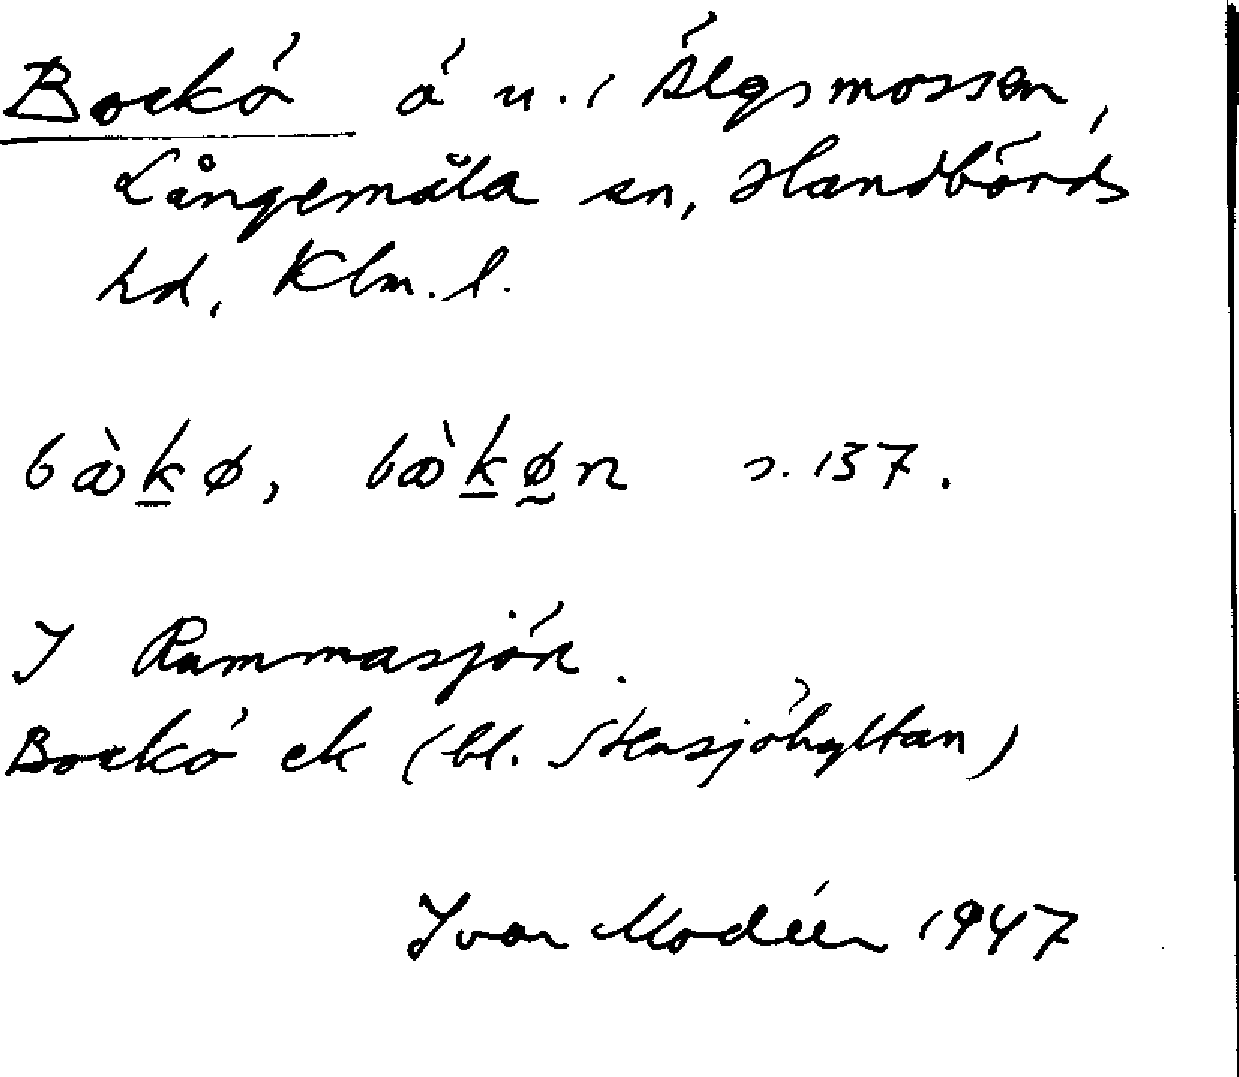 Bockö ö u. i Älgsmossen,
Långemåla sn, Handbörds
hd, Klm. l.
bæ̀k̲ø, bæ̀k̲ø̰n s. 137.
I Rammasjön.
Bockö ek (bl. Stensjöhyltan)
Ivar Modéer 1947